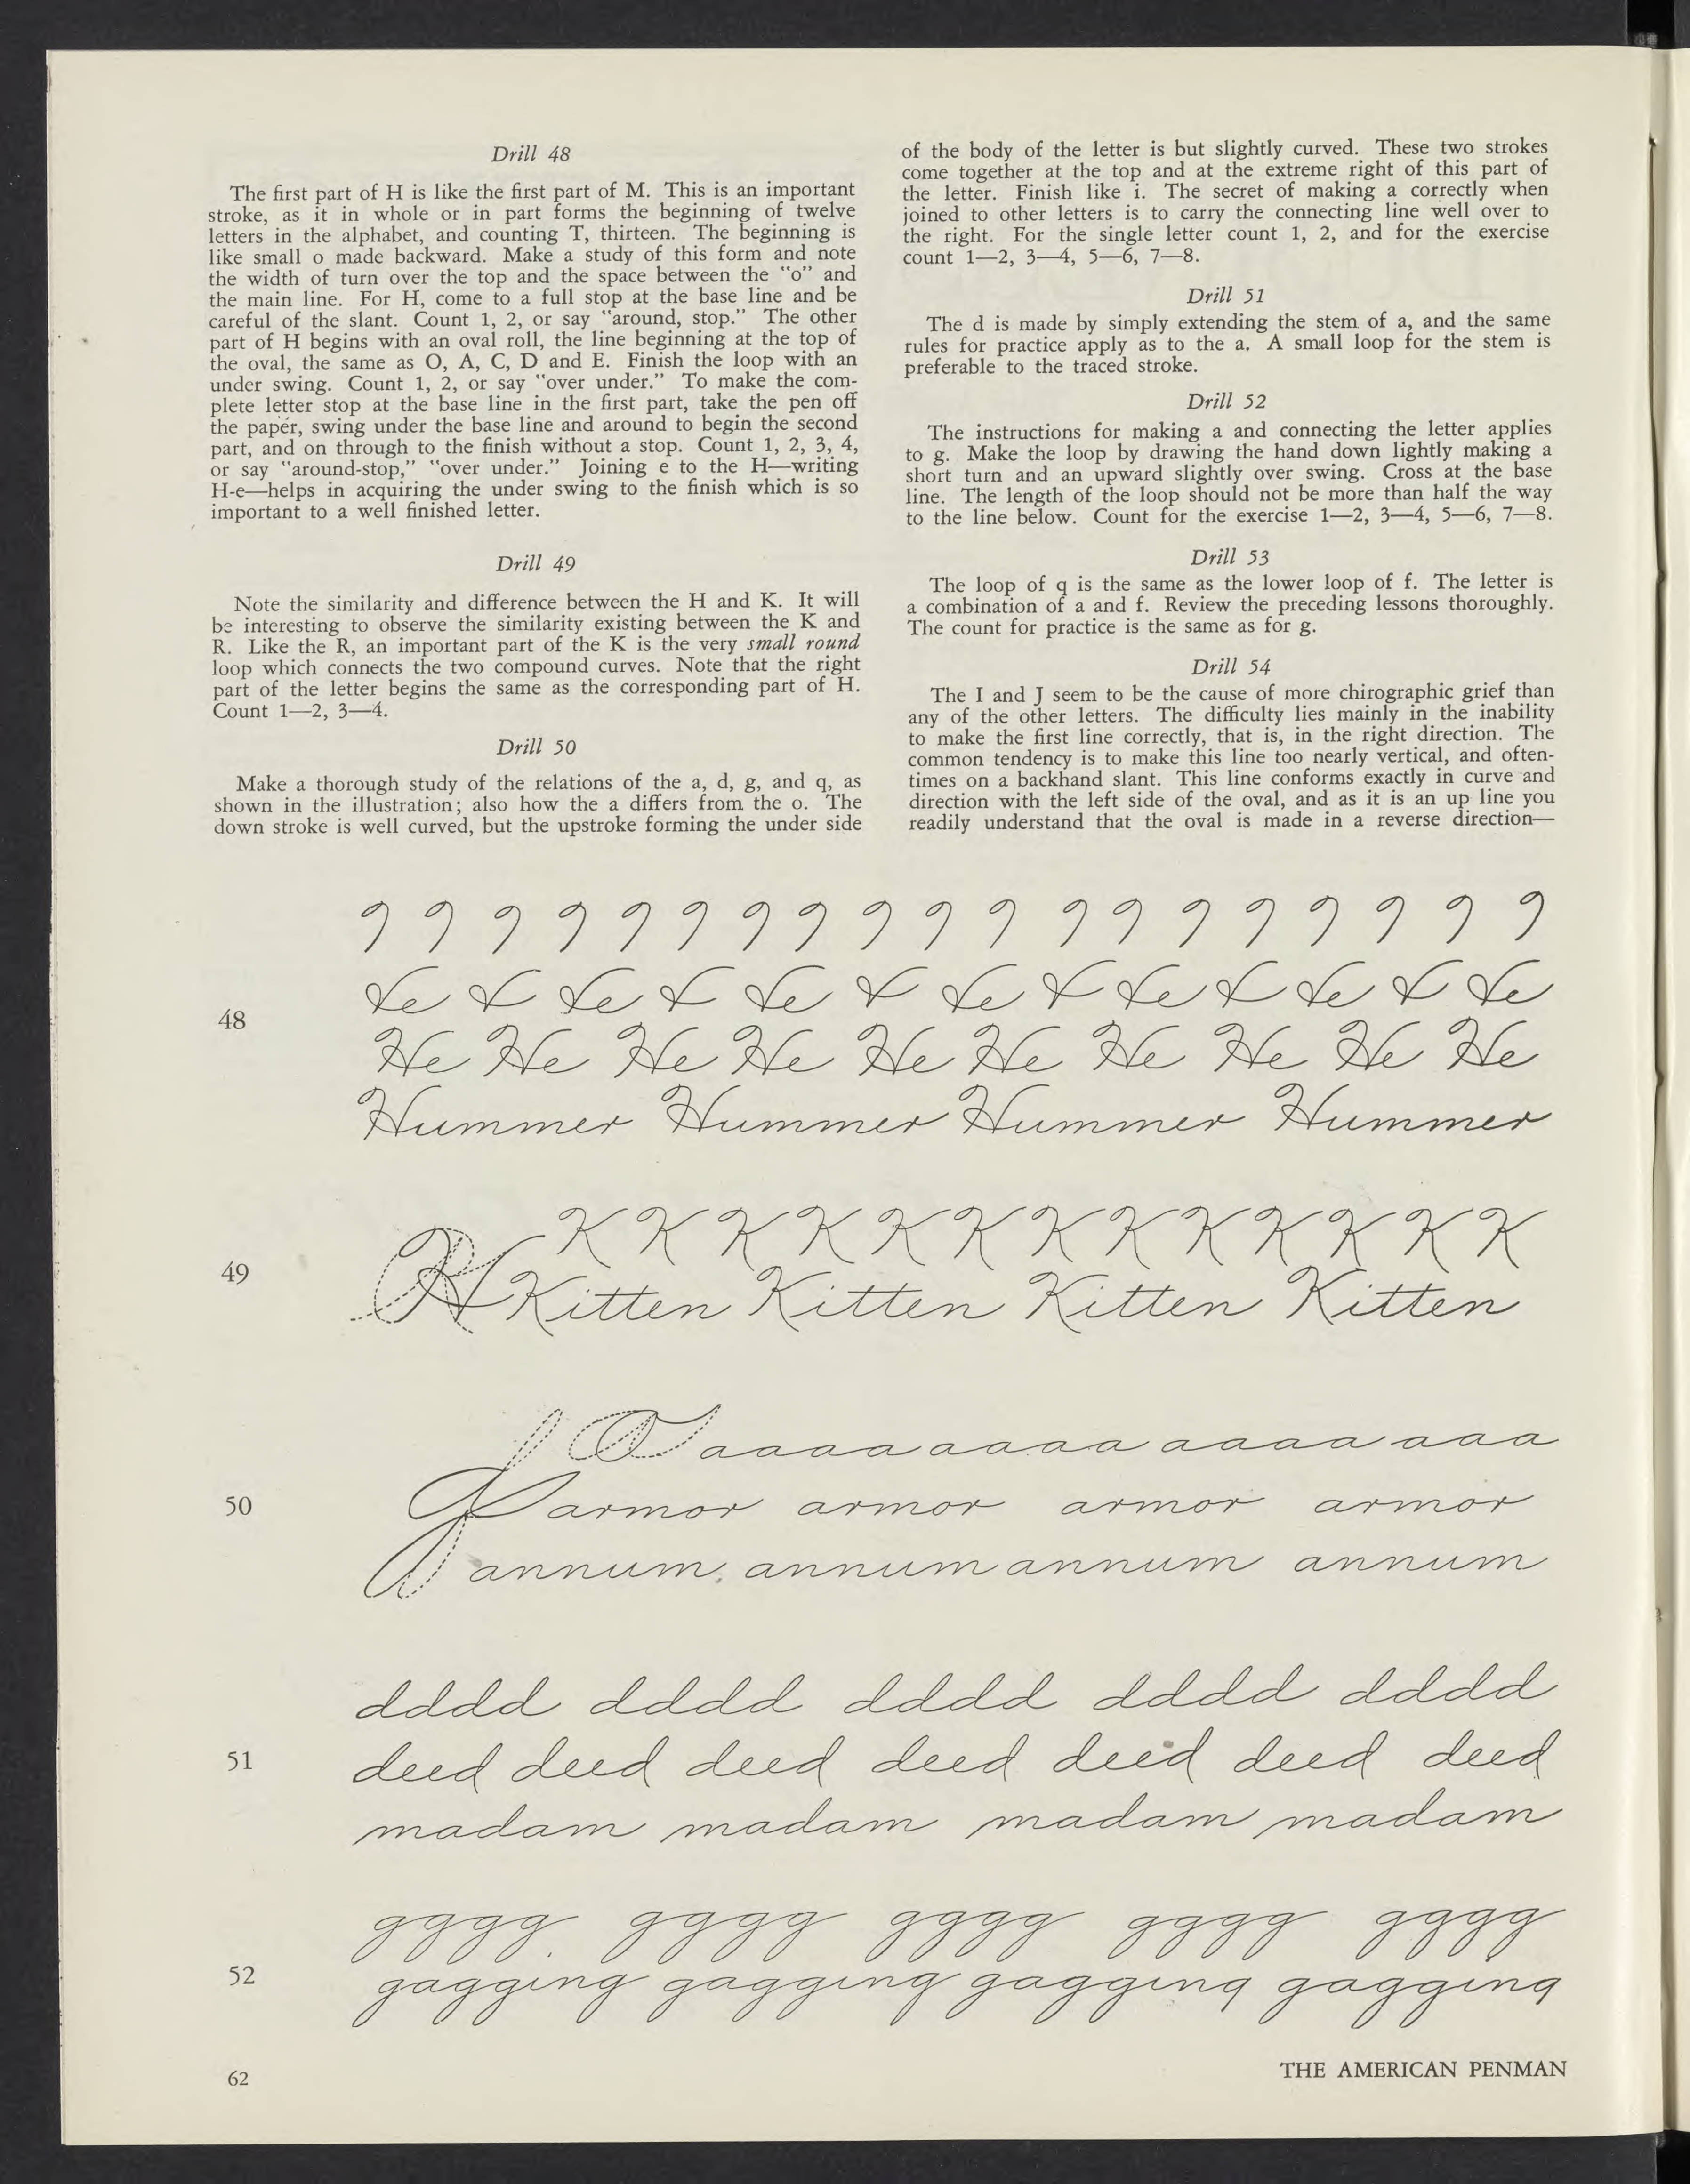 Drill 48
The first part of H is like the first part of M. This is an important
stroke, as it in whole or in part forms the beginning of twelve
letters in the alphabet, and counting T, thirteen. The beginning is
like small o made backward. Make a study of this form and note
the width of turn over the top and the space between the "o" and
the main line. For H, come to a full stop at the base line and be
careful of the slant. Count 1, 2, or say "around, stop." The other
part of H begins with an oval roll, the line beginning at the top of
the oval, the same as O, A, C, D and E. Finish the loop with an
under swing. Count 1, 2, or say "over under." To make the com-
plete letter stop at the base line in the first part, take the pen off
the paper, swing under the base line and around to begin the second
part, and on through to the finish without a stop. Count 1, 2, 3, 4,
or say "around-stop," "over under." Joining e to the H—writing
H-e—helps in acquiring the under swing to the finish which is so
important to a well finished letter.
Drill 49
Note the similarity and difference between the H and K. It will
be interesting to observe the similarity existing between the K and
R. Like the R, an important part of the K is the very small round
loop which connects the two compound curves. Note that the right
part of the letter begins the same as the corresponding part of H.
Count 1—2, 3—4.
Drill 50
Make a thorough study of the relations of the a, d, g, and q, as
shown in the illustration; also how the a differs from the o. The
down stroke is well curved, but the upstroke forming the under side
of the body of the letter is but slightly curved. These two strokes
come together at the top and at the extreme right of this part of
the letter. Finish like i. The secret of making a correctly when
joined to other letters is to carry the connecting line well over to
the right. For the single letter count 1, 2, and for the exercise
count 1—2, 3—4, 5—6, 7—8.
Drill 51
The d is made by simply extending the stem of a, and the same
rules for practice apply as to the a. A small loop for the stem is
preferable to the traced stroke.
Drill 52
The instructions for making a and connecting the letter applies
to g. Make the loop by drawing the hand down lightly making a
short turn and an upward slightly over swing. Cross at the base
line. The length of the loop should not be more than half the way
to the line below. Count for the exercise 1—2, 3—4, 5—6, 7—8.
Drill 53
The loop of q is the same as the lower loop of f. The letter is
a combination of a and f. Review the preceding lessons thoroughly.
The count for practice is the same as for g.
Drill 54
The I and J seem to be the cause of more chirographic grief than
any of the other letters. The difficulty lies mainly in the inability
to make the first line correctly, that is, in the right direction. The
common tendency is to make this line too nearly vertical, and often-
times on a backhand slant. This line conforms exactly in curve and
direction with the left side of the oval, and as it is an up line you
readily understand that the oval is made in a reverse direction—
48
He He He He He He He He He He
Hummer Hummer Hummer Hummer
49
K K K K K K K K K K K K K
Kitten Kitten Kitten Kitten
50
aaaa aaaa aaaa aaa
armor armor armor armor
annum annum annum annum
51
dddd dddd dddd dddd dddd
deed deed deed deed deed deed deed
madam madam madam madam
52
gggg gggg gggg gggg gggg
gagging gagging gagging gagging
62
THE AMERICAN PENMAN